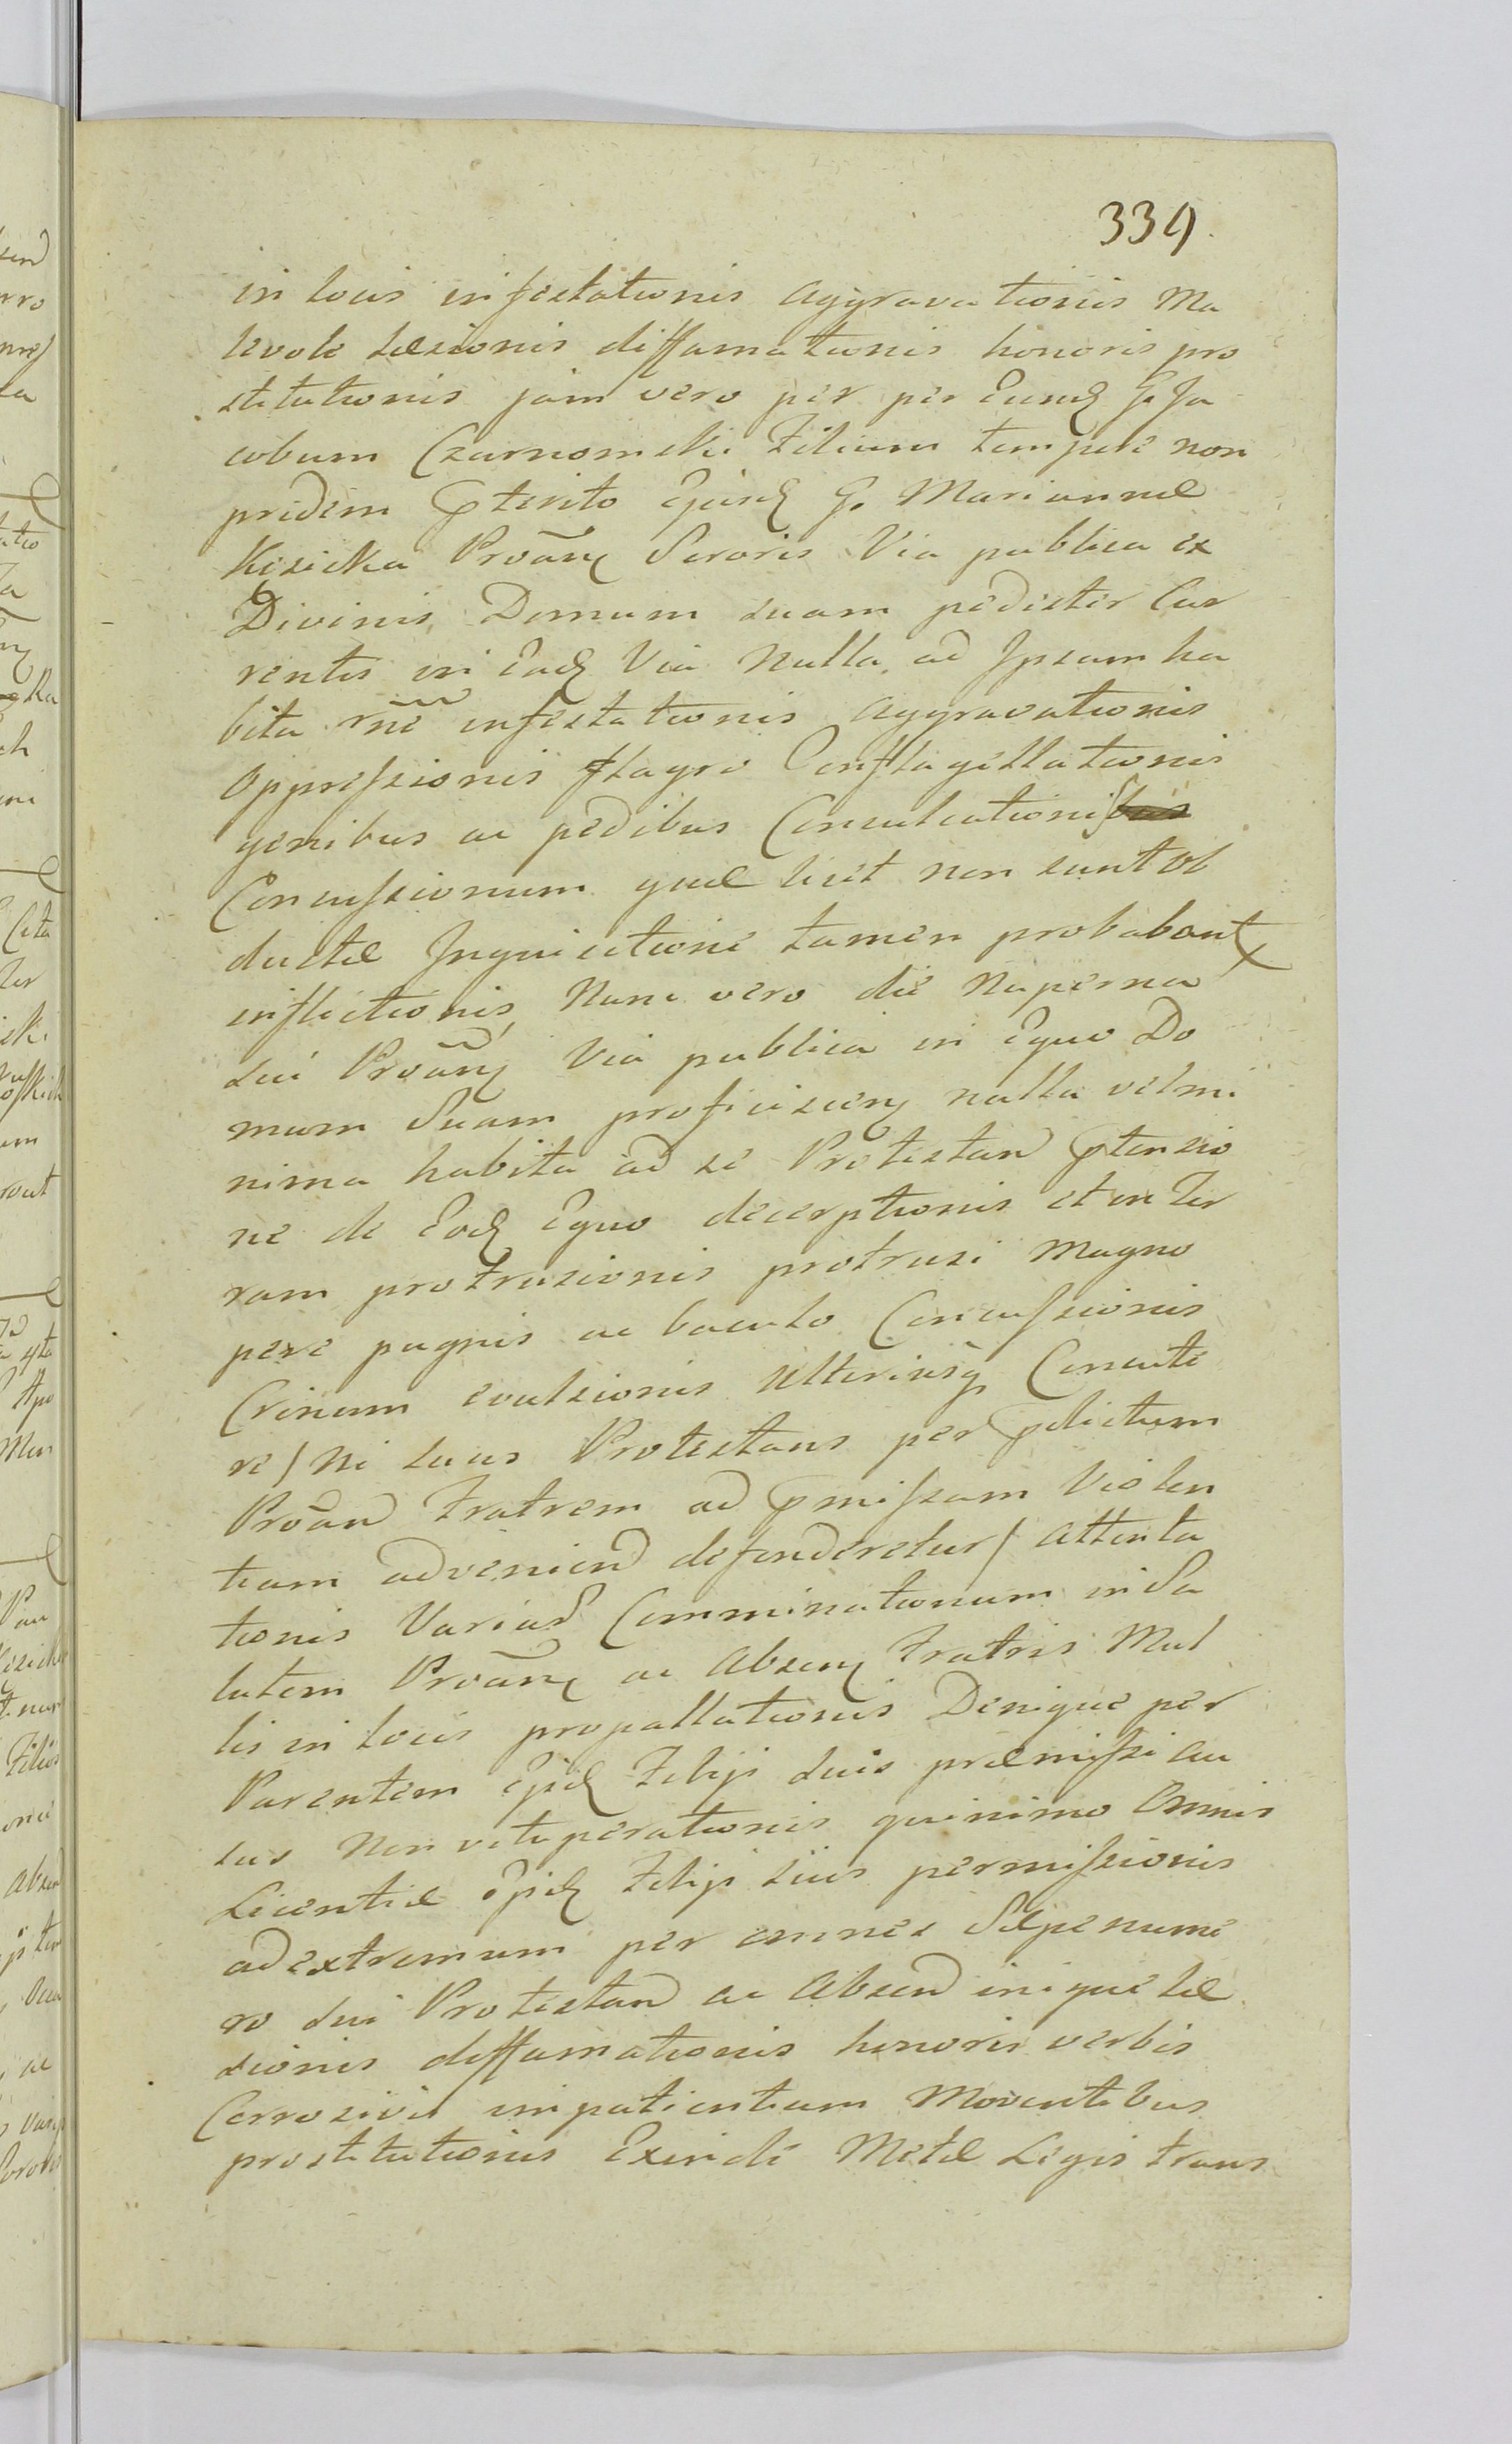 339.
in locis infestationis aggravationis Ma
levole læsionis diffamationis honoris pro
stitutionis jam vero per per Eund G. Ja
cobum Czarnomski Filium tempore non
pridem Pterito Ejusd G. Mariannæ
Kozicka Proãn Sororis Via publica ex
Divinis Domum suam pedester Cur
rentis in Ead Via Nulla ad Ipsam ha
bita rñe infestationis aggravationis
Oppressionis flagro Conflagellationis
genibus ac pedibus Conculcationis
Concussionum quæ licet non sunt ob
ductæ Inquisitione tamen probabunt
inflictionis, Nunc vero die Naperna
sui Proãn Via publica in Equo Do
mum Suam proficiscen nulla vel mi
nima habita ad se Protestan Ptensio
ne de Eod Equo decerptionis et in Ter
ram protrusionis protrusi Magno
pere pugnis ac baculo Concussionis
Crinum evulsionis ulteriusq Concute
re / Ni suus Protestans per Pdictum
Proãn Fratrem ad Pmissam Violen
tiam advenien defenderetur / attenta
tionis Varias Comminationum in Sa
lutem Proãn ac Absen Fratris Mul
tis in locis propallationis Denique per
Parentem Ejusd Filij suis præmissi au
sus Non vituperationis quinimo Omnis
Licentiæ Ejusd Filij suis permissionis
ad extremum per omnes Sæpenume
ro sui Protestan ac Absen inique læ
sionis diffamationis honoris verbis
Corrosivis impatientiam Moventibus
prostitutionis Exinde Metæ Legis trans